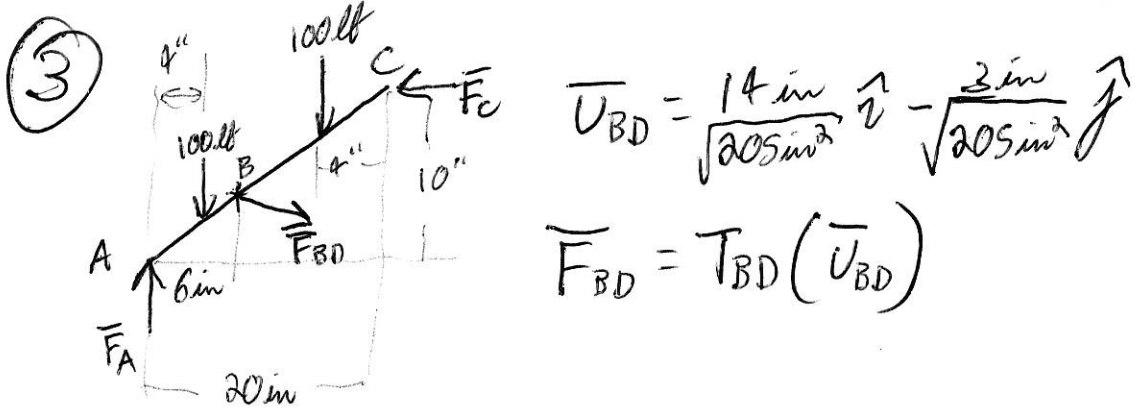 3
4"
100 lb
C
F̅_C
100 lb
B
4"
10"
A
F̅_BD
6 in
F̅_A
20 in
U̅_BD = 14 in/√205 in² î - 3 in/√205 in² ĵ
F̅_BD = T_BD (U̅_BD)